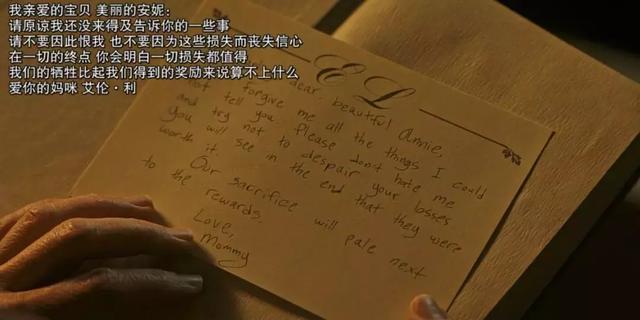 我亲爱的宝贝 美丽的安妮:
请原谅我还没来得及告诉你的一些事
请不要因此恨我 也不要因为这些损失而丧失信心
在一切的终点 你会明白一切损失都值得
我们的牺牲比起我们得到的奖励来说算不上什么
爱你的妈咪 艾伦·利
EL
dear, beautiful Annie,
forgive me all the things I could
not tell you. Please don't hate me
and try not to despair your losses
You will see in the end that they were
worth it.
Our sacrifice will pale next
to the rewards.
Love,
Mommy